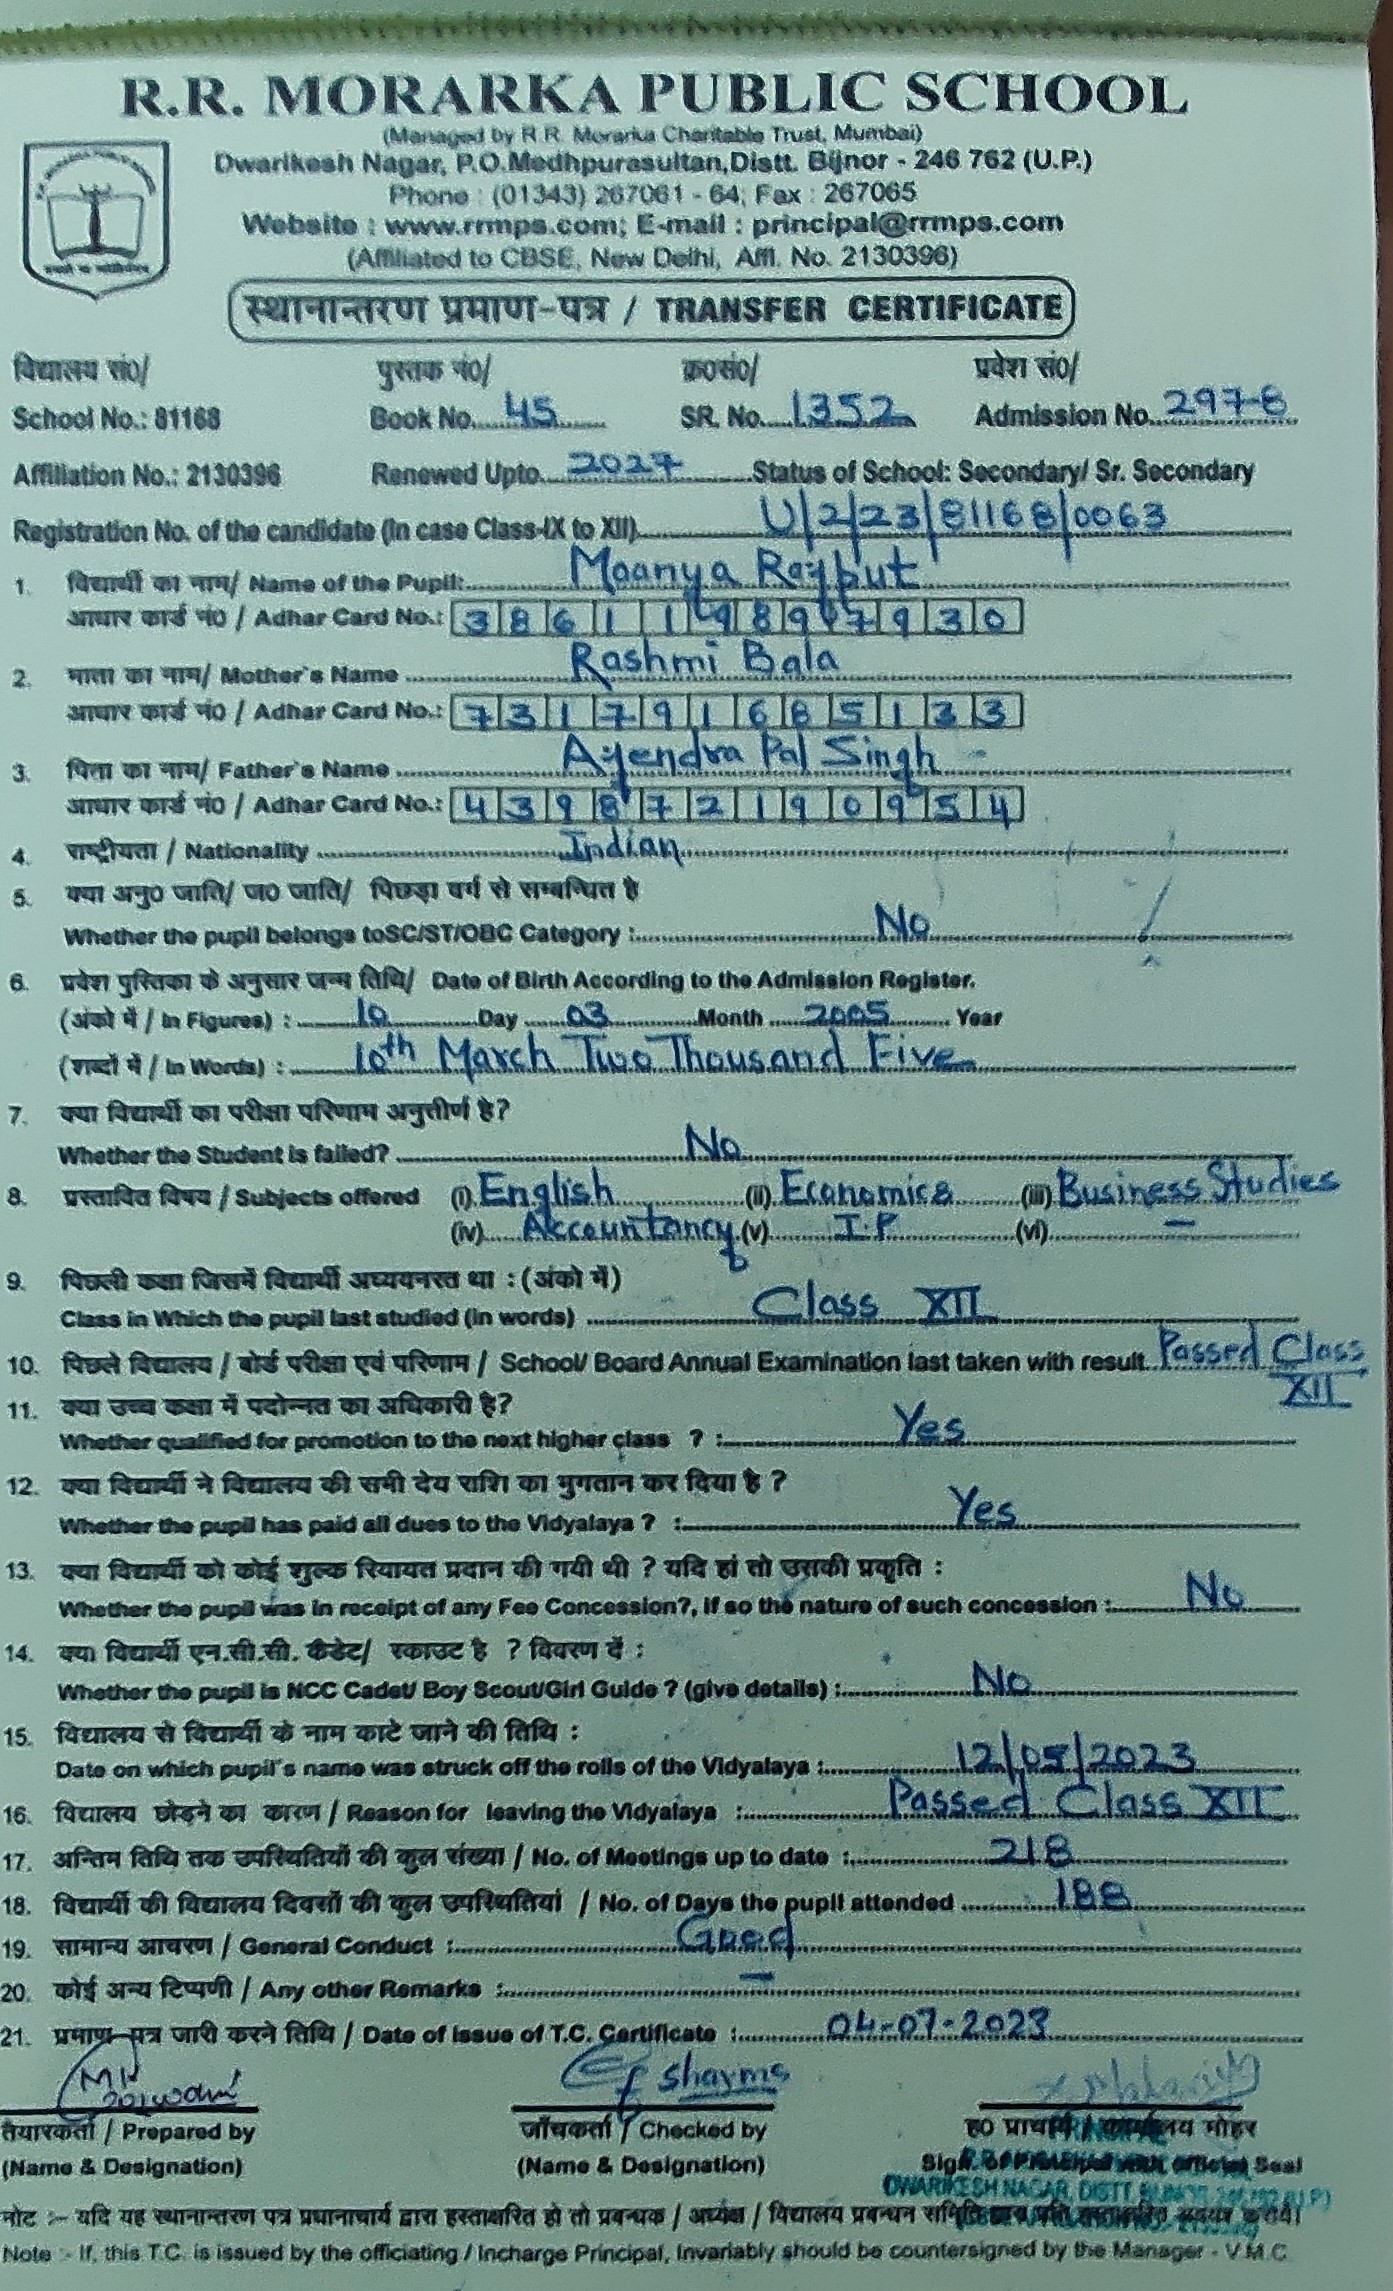 R.R. MORARKA PUBLIC SCHOOL
(Managed by R.R. Morarka Charitable Trust, Mumbai)
Dwarikesh Nagar, P.O.Medhpurasultan,Distt. Bijnor - 246 762 (U.P.)
Phone : (01343) 267061 - 64; Fax : 267065
Website : www.rrmps.com; E-mail : principal@rrmps.com
(Affiliated to CBSE, New Delhi, Affl. No. 2130396)
स्थानान्तरण प्रमाण-पत्र / TRANSFER CERTIFICATE
विद्यालय सं0/ पुस्तक नं0/ क्र0सं0/ प्रवेश सं0/
School No.: 81168 Book No. 45 SR. No. 1352 Admission No. 2978
Affiliation No.: 2130396 Renewed Upto 2027 Status of School: Secondary/ Sr. Secondary
Registration No. of the candidate (in case Class-IX to XII) U/2/23/81168/0063
1. विद्यार्थी का नाम/ Name of the Pupil: Maanya Rajput
आधार कार्ड नं0 / Adhar Card No.: 3 8 6 1 1 9 8 9 7 9 3 0
2. माता का नाम/ Mother's Name Rashmi Bala
आधार कार्ड नं0 / Adhar Card No.: 7 3 1 7 9 1 6 8 5 1 3 3
3. पिता का नाम/ Father's Name Ajendra Pal Singh
आधार कार्ड नं0 / Adhar Card No.: 4 3 9 8 7 2 1 9 0 9 5 4
4. राष्ट्रीयता / Nationality Indian
5. क्या अनु0 जाति/ ज0 जाति/ पिछड़ा वर्ग से सम्बन्धित है
Whether the pupil belongs toSC/ST/OBC Category : No
6. प्रवेश पुस्तिका के अनुसार जन्म तिथि/ Date of Birth According to the Admission Register.
(अंको में / In Figures) : 10 Day 03 Month 2005 Year
(शब्दों में / In Words) : 10th March Two Thousand Five
7. क्या विद्यार्थी का परीक्षा परिणाम अनुत्तीर्ण है?
Whether the Student is failed? No
8. प्रस्तावित विषय / Subjects offered (i) English (ii) Economics (iii) Business Studies
(iv) Accountancy (v) I.P (vi) —
9. पिछली कक्षा जिसमें विद्यार्थी अध्ययनरत था : (अंको में)
Class in Which the pupil last studied (in words) Class XII
10. पिछले विद्यालय / बोर्ड परीक्षा एवं परिणाम / School/ Board Annual Examination last taken with result Passed Class
XII
11. क्या उच्च कक्षा में पदोन्नत का अधिकारी है?
Whether qualified for promotion to the next higher class ? : Yes
12. क्या विद्यार्थी ने विद्यालय की सभी देय राशि का भुगतान कर दिया है ?
Whether the pupil has paid all dues to the Vidyalaya ? : Yes
13. क्या विद्यार्थी को कोई शुल्क रियायत प्रदान की गयी थी ? यदि हां तो उसकी प्रकृति :
Whether the pupil was in receipt of any Fee Concession?, if so the nature of such concession : No
14. क्या विद्यार्थी एन.सी.सी. कैडेट/ स्काउट है ? विवरण दें :
Whether the pupil is NCC Cadet/ Boy Scout/Girl Guide ? (give details) : No
15. विद्यालय से विद्यार्थी के नाम काटे जाने की तिथि :
Date on which pupil's name was struck off the rolls of the Vidyalaya : 12/05/2023
16. विद्यालय छोड़ने का कारण / Reason for leaving the Vidyalaya : Passed Class XII
17. अन्तिम तिथि तक उपस्थितियों की कुल संख्या / No. of Meetings up to date : 218
18. विद्यार्थी की विद्यालय दिवसों की कुल उपस्थितियां / No. of Days the pupil attended 188
19. सामान्य आचरण / General Conduct : Good
20. कोई अन्य टिप्पणी / Any other Remarks : —
21. प्रमाण-पत्र जारी करने तिथि / Date of issue of T.C. Certificate : 04-07-2023
Sharma
तैयारकर्ता / Prepared by जाँचकर्ता / Checked by ह0 प्राचार्य / कार्यालय मोहर
(Name & Designation) (Name & Designation) Sign. of Principal with official Seal
DWARIKESH NAGAR, DISTT.
नोट :- यदि यह स्थानान्तरण पत्र प्रधानाचार्य द्वारा हस्ताक्षरित हो तो प्रबन्धक / अध्यक्ष / विद्यालय प्रबन्धन समिति
Note :- If, this T.C. is issued by the officiating / Incharge Principal, Invariably should be countersigned by the Manager - V.M.C